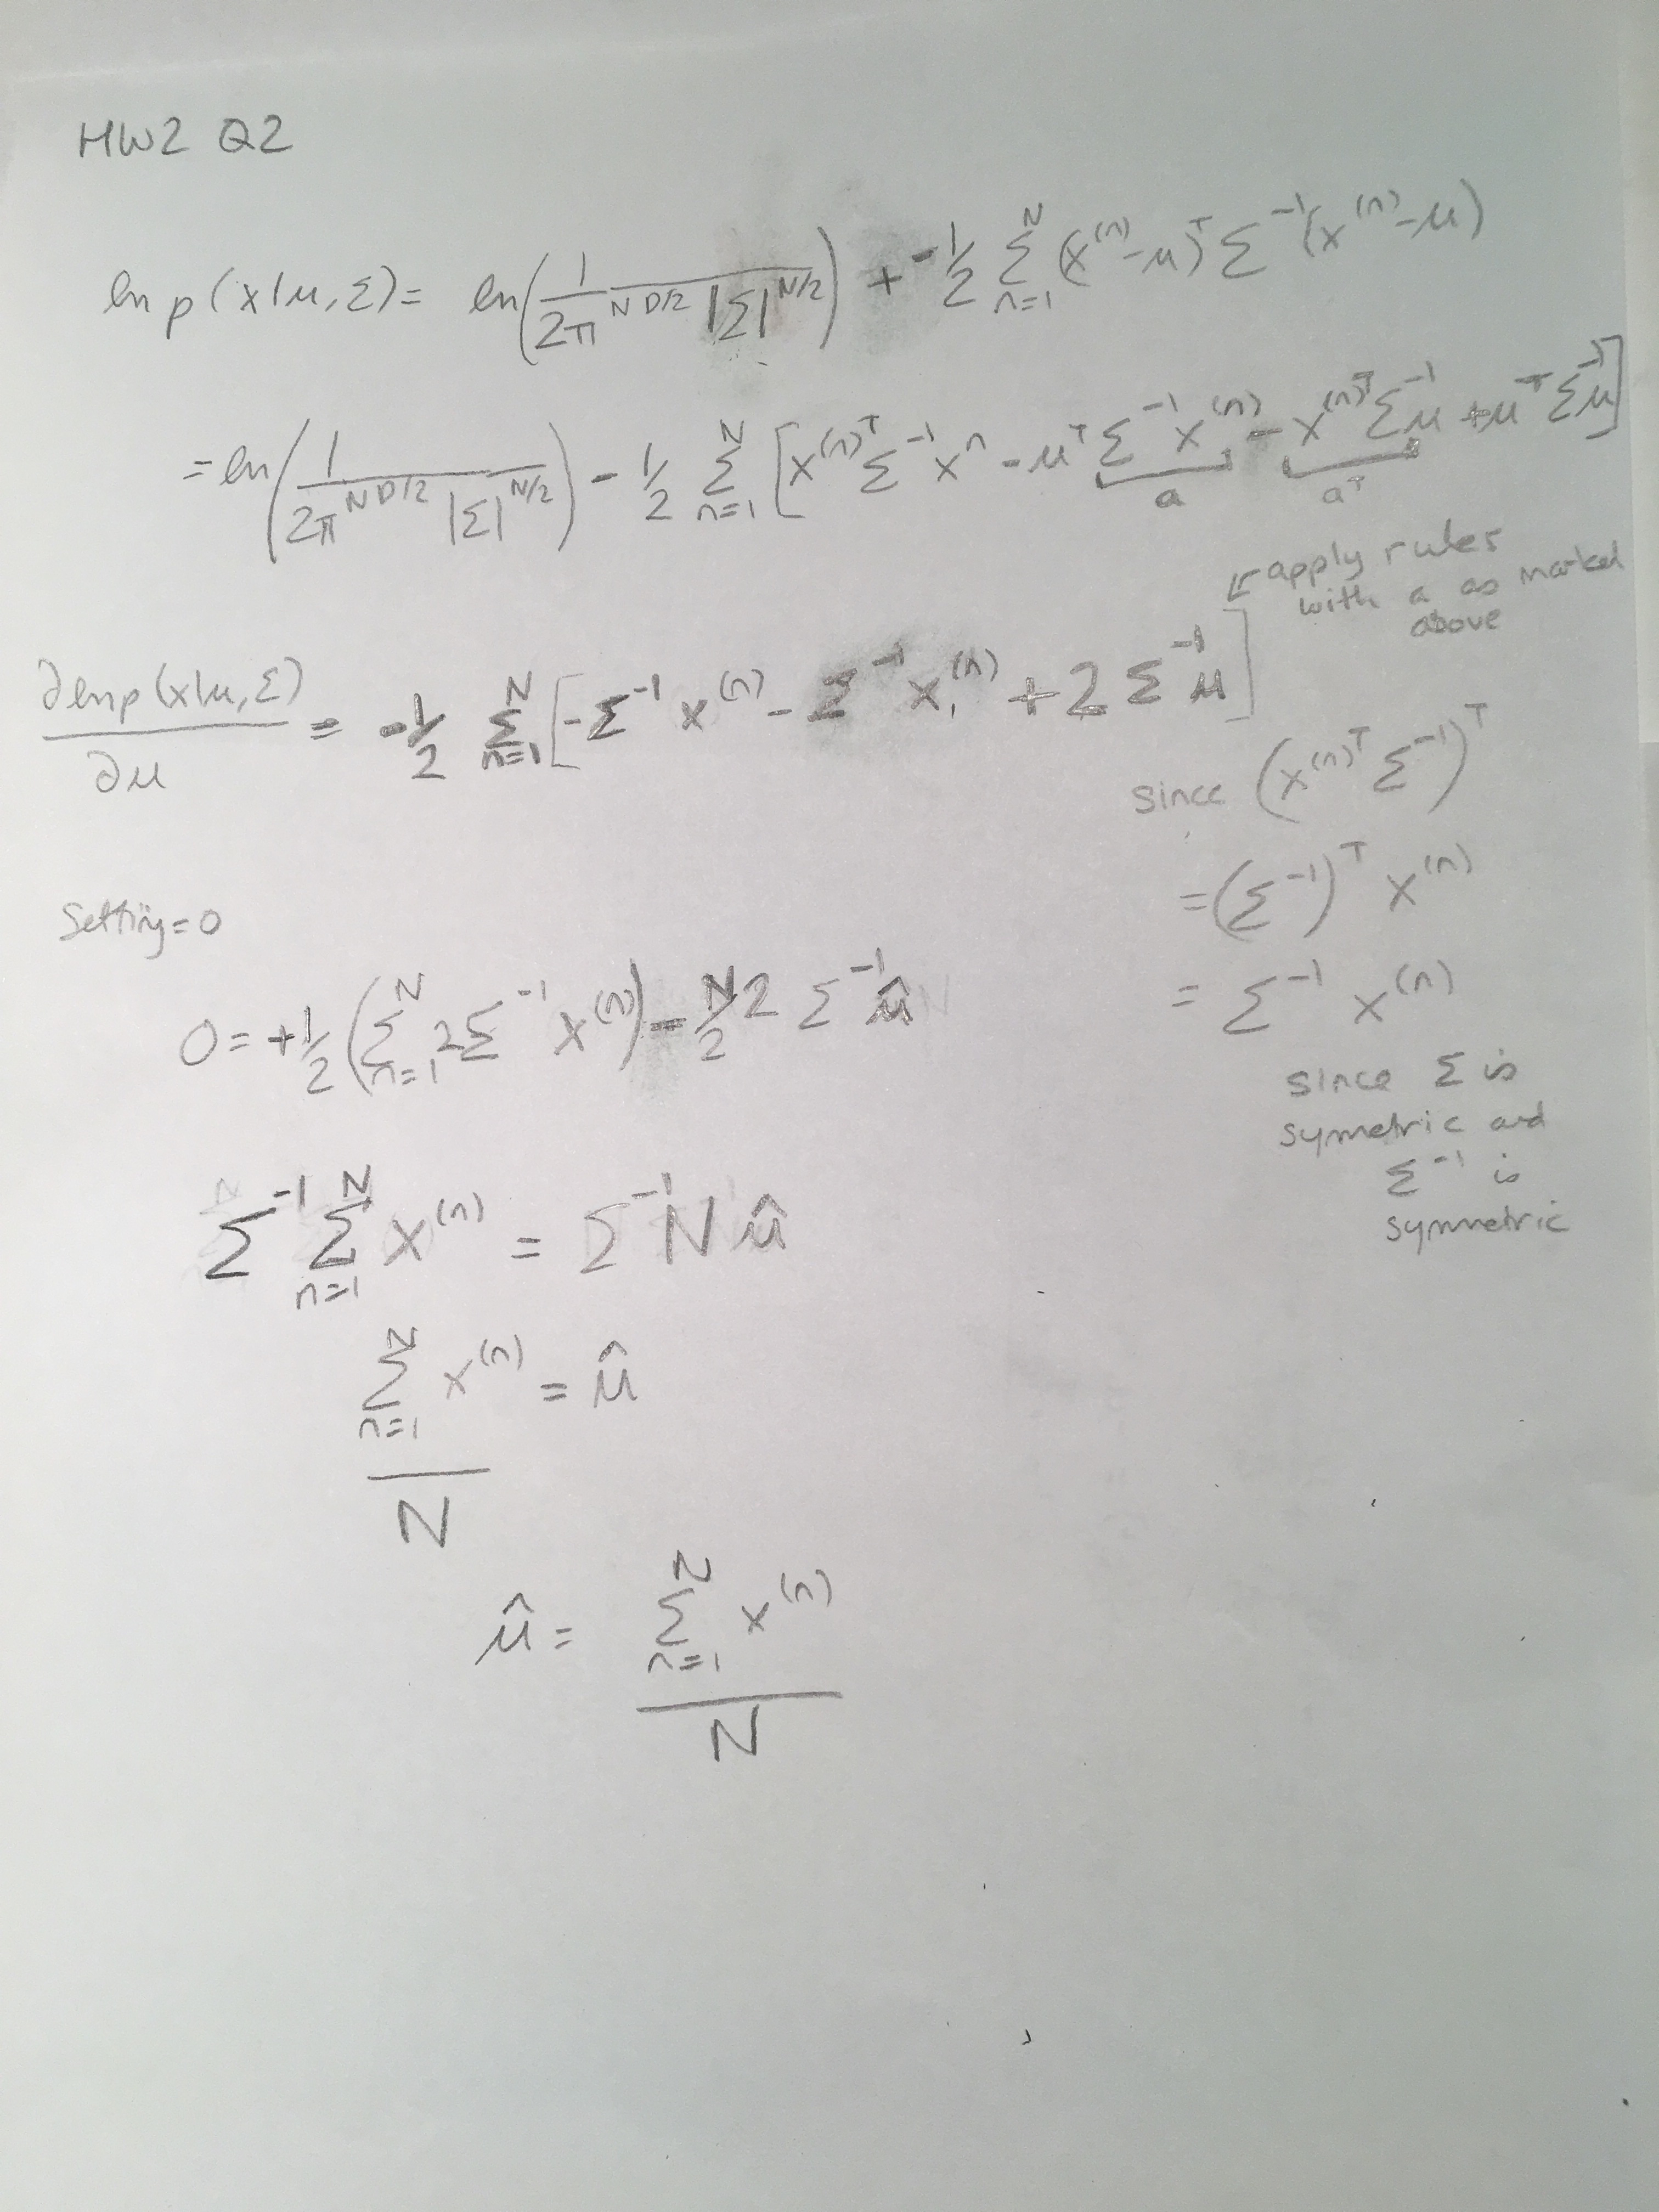 HW2 Q2
ln p(x|μ,Σ) = ln(1 / 2π^{ND/2} |Σ|^{N/2}) + -1/2 Σ_{n=1}^{N} (x^{(n)}-μ)^T Σ^{-1} (x^{(n)}-μ)
= ln(1 / 2π^{ND/2} |Σ|^{N/2}) - 1/2 Σ_{n=1}^{N} [x^{(n)T} Σ^{-1} x^n - μ^T Σ^{-1} x^{(n)} - x^{(n)T} Σ^{-1} μ + μ^T Σ^{-1} μ]
a a^T
apply rules
with a as marked
above
∂ln p(x|μ,Σ) / ∂μ = -1/2 Σ_{n=1}^{N} [-Σ^{-1} x^{(n)} - Σ^{-1} x^{(n)} + 2 Σ^{-1} μ]
since (x^{(n)T} Σ^{-1})^T
= (Σ^{-1})^T x^{(n)}
= Σ^{-1} x^{(n)}
since Σ is
symetric and
Σ^{-1} is
symmetric
Setting = 0
0 = +1/2 (Σ_{n=1}^{N} 2Σ^{-1} x^{(n)}) - N/2 2 Σ^{-1} μ̂
Σ^{-1} Σ_{n=1}^{N} x^{(n)} = Σ^{-1} N μ̂
Σ_{n=1}^{N} x^{(n)} = μ̂
N
μ̂ = Σ_{n=1}^{N} x^{(n)}
N